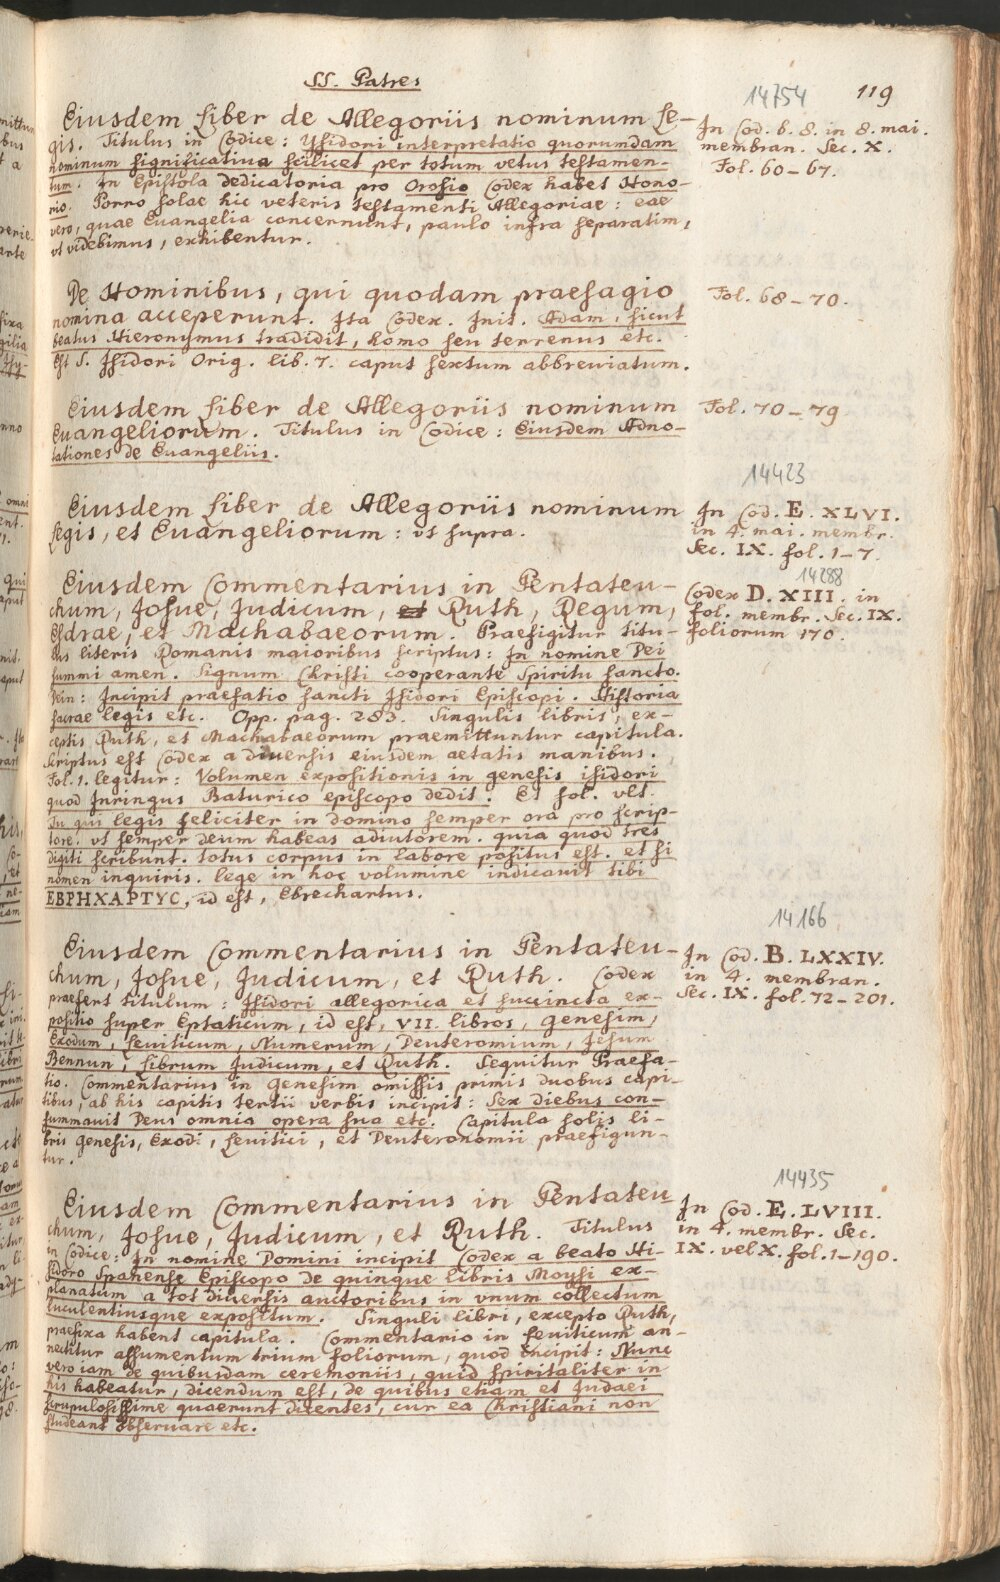 SS. Patres
119
Eiusdem Liber de Allegoriis nominum Le-
gis. Titulus in Codice: Ysidori interpretatio quorumdam
nominum significatiua scilicet per totum vetus testamen-
tum. In Epistola dedicatoria pro Orosio Codex habet Hono-
rio. Porro solae hic veteris testamenti Allegoriae: eae
vero, quae Euangelia concernunt, paulo infra separatim,
vt videbimus, exhibentur.
14754
In Cod. b. 8. in 8. mai.
membran. Sec. X.
Fol. 60-67.
De Hominibus, qui quodam praesagio
nomina acceperunt. Ita Codex. Init. Adam, sicut
beatus Hieronymus tradidit, homo seu terrenus etc.
Est S. Isidori Orig. lib. 7. caput sextum abbreviatum.
Fol. 68-70.
Eiusdem Liber de Allegoriis nominum
Euangeliorum. Titulus in Codice: Eiusdem Adno-
tationes de Euangeliis.
Fol. 70-79
Eiusdem Liber de Allegoriis nominum
Legis, et Euangeliorum: vt supra.
14423
In Cod. E. XLVI.
in 4. mai. membr.
Sec. IX. fol. 1-7.
Eiusdem Commentarius in Pentateu-
chum, Josue, Judicum, et Ruth, Regum,
Esdrae, et Machabaeorum. Praefigitur titu-
lus literis Romanis maioribus scriptus: In nomine Dei
summi amen. Signum Christi cooperante Spiritu sancto.
Dein: Incipit praefatio sancti Isidori Episcopi. Historia
sacrae legis etc. Opp. pag. 283. Singulis libris, ex-
ceptis Ruth, et Machabaeorum praemittuntur capitula.
Scriptus est Codex a diuersis eiusdem aetatis manibus.
Fol. 1. legitur: Volumen expositionis in genesis isidori
quod Inringus Baturico episcopo dedit. Et fol. vlt.
Tu qui legis feliciter in domino semper ora pro scrip-
tore. vt semper deum habeas adiutorem. quia quod tres
digiti scribunt. totus corpus in labore positus est. et si
nomen inquiris. lege in hoc volumine indicauit tibi
EBPHXAPTYC, id est, Ebrechartus.
14288
Codex D. XIII. in
fol. membr. Sec. IX.
foliorum 170.
Eiusdem Commentarius in Pentateu-
chum, Josue, Judicum, et Ruth. Codex
praefert titulum: Isidori allegorica et succincta ex-
positio super Eptaticum, id est, VII. libros, Genesim,
Exodum, Leuiticum, Numerum, Deuteromium, Jesum
Bennun, Librum Judicum, et Ruth. Sequitur Praefa-
tio. Commentarius in Genesim omissis primis duobus capi-
tibus, ab his capitis tertii verbis incipit: Sex diebus con-
summauit Deus omnia opera sua etc. Capitula solis li-
bris Genesis, Exodi, Leuitici, et Deuteronomii praefigun-
tur.
14166
In Cod. B. LXXIV.
in 4. membran.
Sec. IX. fol. 72-201.
Eiusdem Commentarius in Pentateu
chum, Josue, Judicum, et Ruth. Titulus
in Codice: In nomine Domini incipit Codex a beato Hi-
sidoro Spanense Episcopo de quinque libris Moysi ex-
planatum a tot diuersis auctoribus in vnum collectum
luculentiusque expositum. Singuli libri, excepto Ruth,
praefixa habent capitula. Commentario in Leuiticum an-
nectitur assumentum trium foliorum, quod incipit: Nunc
vero iam de quibusdam ceremoniis, quid spiritaliter in
his habeatur, dicendum est, de quibus etiam et Judaei
scrupulosissime quaerunt dicentes, cur ea Christiani non
studeant obseruare etc.
14435
In Cod. E. LVIII.
in 4. membr. Sec.
IX. vel X. fol. 1-190.